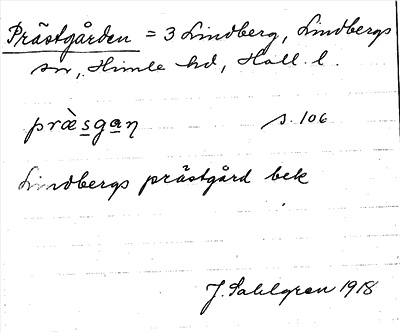 Prästgården = 3 Lindberg, Lindbergs
sn, Himle hd, Hall. l.
præ̀sgan s. 106
Lindbergs prästgård bek
J. Sahlgren 1918